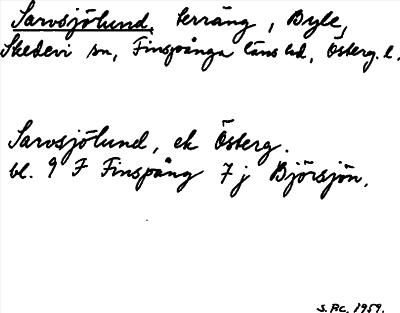 Sarvsjölund, terräng, Byle,
Skedevi sn, Finspånga läns hd, Österg. l.
Sarvsjölund, ek Österg.
bl. 9 F Finspång 7 j Björsjön.
S. Rc. 1959.